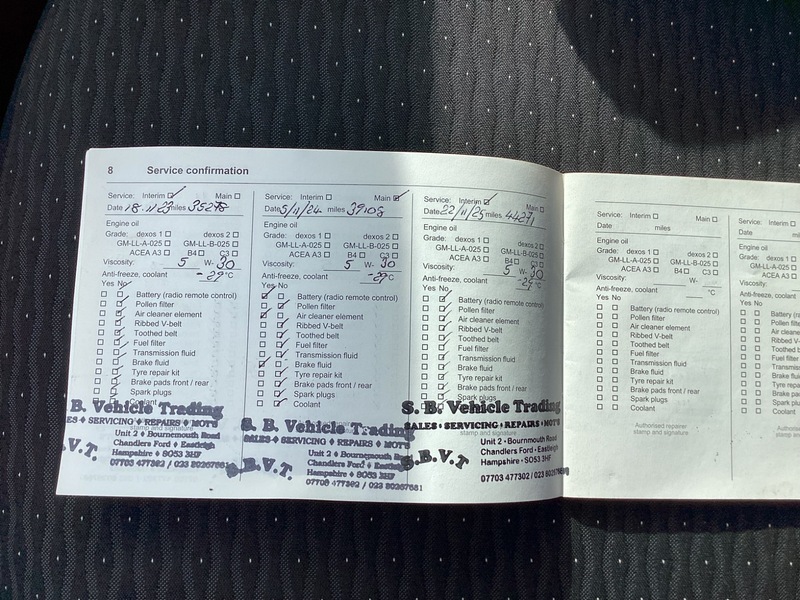 8 Service confirmation
Service: Interim Main
Date 18.11.23 miles 35278
Engine oil
Grade: dexos 1 dexos 2
GM-LL-A-025 GM-LL-B-025
ACEA A3 B4 C3
Viscosity: 5 W- 30
Anti-freeze, coolant -29 °C
Yes No
Battery (radio remote control)
Pollen filter
Air cleaner element
Ribbed V-belt
Toothed belt
Fuel filter
Transmission fluid
Brake fluid
Tyre repair kit
Brake pads front / rear
Spark plugs
Coolant
B. Vehicle Trading
ES ♦ SERVICING ♦ REPAIRS ♦ MOTS
Unit 2 ♦ Bournemouth Road
Chandlers Ford ♦ Eastleigh
Hampshire ♦ SO53 3HF
07703 477302 / 023 80267681
.V.T.
Service: Interim Main
Date 5/11/24 miles 39108
Engine oil
Grade: dexos 1 dexos 2
GM-LL-A-025 GM-LL-B-025
ACEA A3 B4 C3
Viscosity: 5 W- 30
Anti-freeze, coolant -29 °C
Yes No
Battery (radio remote control)
Pollen filter
Air cleaner element
Ribbed V-belt
Toothed belt
Fuel filter
Transmission fluid
Brake fluid
Tyre repair kit
Brake pads front / rear
Spark plugs
Coolant
S. B. Vehicle Trading
SALES ♦ SERVICING ♦ REPAIRS ♦ MOTS
Unit 2 ♦ Bournemouth Road
Chandlers Ford ♦ Eastleigh
Hampshire ♦ SO53 3HF
07703 477302 / 023 80267681
S.B.V.T.
Service: Interim Main
Date 22/11/25 miles 44271
Engine oil
Grade: dexos 1 dexos 2
GM-LL-A-025 GM-LL-B-025
ACEA A3 B4 C3
Viscosity: 5 W- 30
Anti-freeze, coolant -29 °C
Yes No
Battery (radio remote control)
Pollen filter
Air cleaner element
Ribbed V-belt
Toothed belt
Fuel filter
Transmission fluid
Brake fluid
Tyre repair kit
Brake pads front / rear
Spark plugs
Coolant
S. B. Vehicle Trading
stamp and signature
SALES • SERVICING • REPAIRS • MOTS
Unit 2 • Bournmouth Road
Chandlers Ford • Eastleigh
Hampshire • SO53 3HF
07703 477302 / 023 80267
S.B.V.T
Service: Interim Main
Date miles
Engine oil
Grade: dexos 1 dexos 2
GM-LL-A-025 GM-LL-B-025
ACEA A3 B4 C3
Viscosity: W-
Anti-freeze, coolant °C
Yes No
Battery (radio remote control)
Pollen filter
Air cleaner element
Ribbed V-belt
Toothed belt
Fuel filter
Transmission fluid
Brake fluid
Tyre repair kit
Brake pads front / rear
Spark plugs
Coolant
Authorised repairer
stamp and signature
Service: Interim
Date mi
Engine oil
Grade: dexos 1
GM-LL-A-025
ACEA A3
Viscosity:
Anti-freeze, coolant
Yes No
Battery (ra
Pollen filte
Air cleane
Ribbed V-
Toothed b
Fuel filter
Transmiss
Brake fluid
Tyre repai
Brake pad
Spark plu
Coolant
Authorised re
stamp and sig